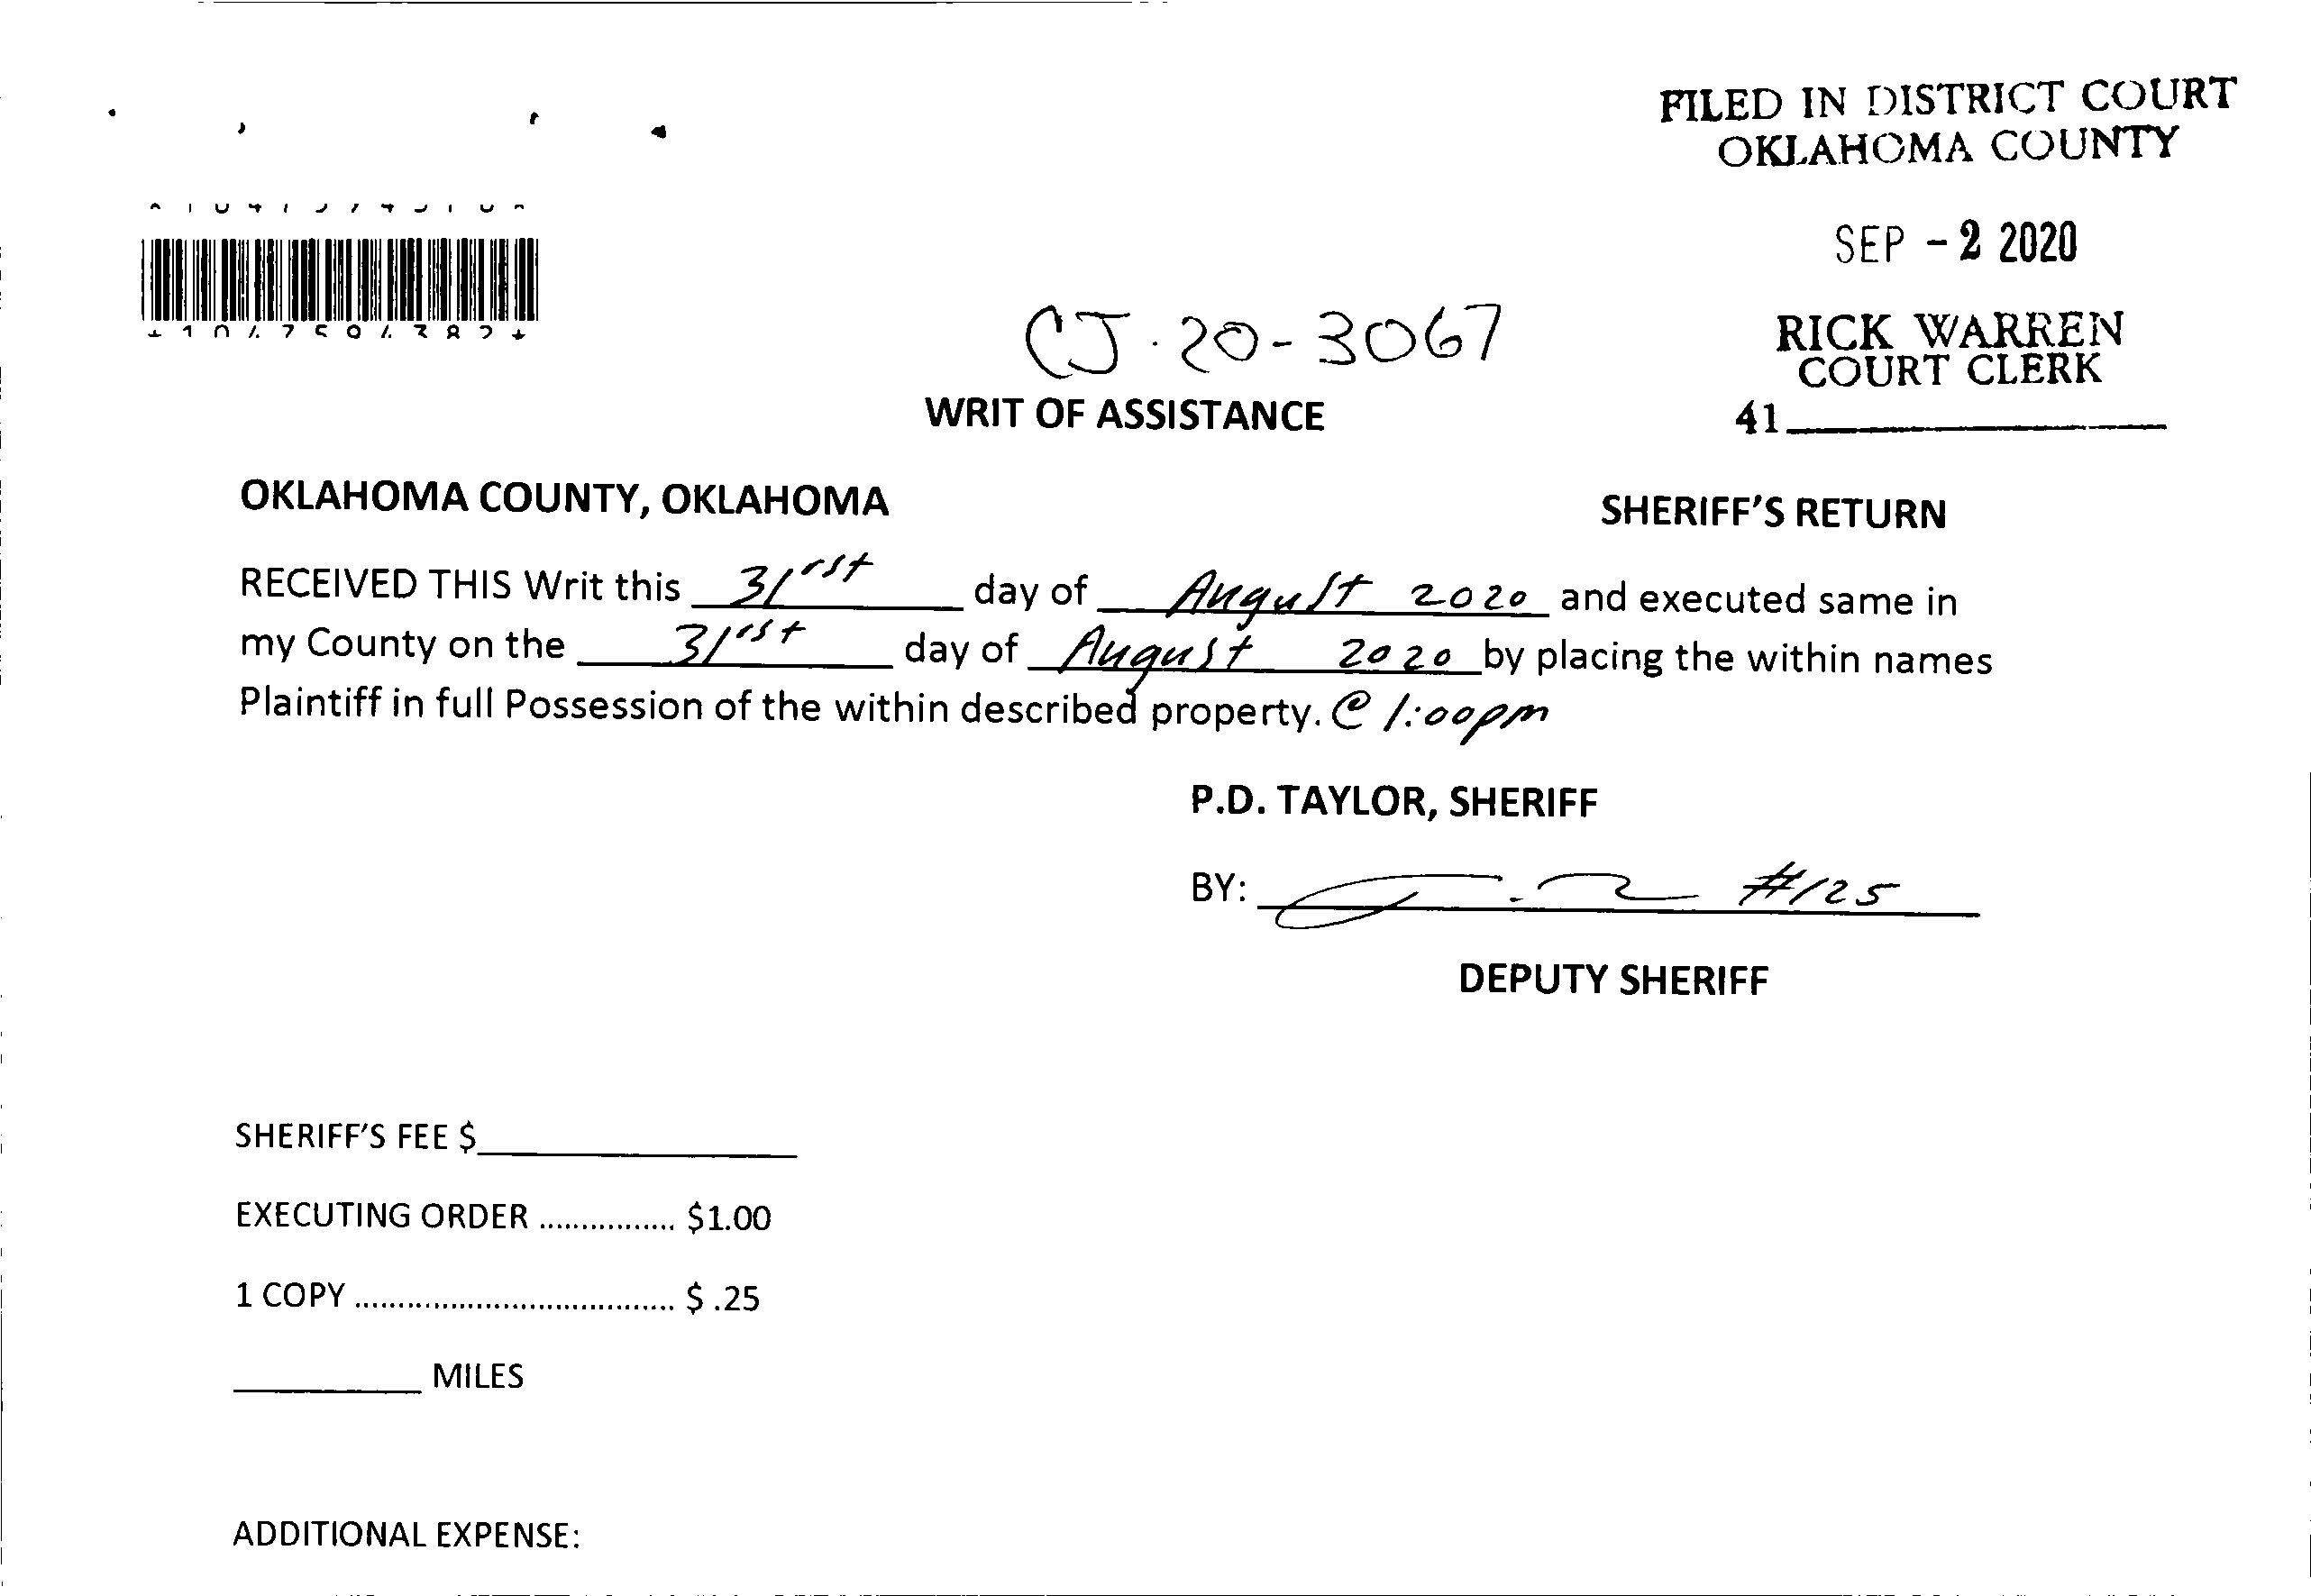 FILED IN DISTRICT COURT
OKLAHOMA COUNTY
SEP - 2 2020
RICK WARREN
COURT CLERK
41
CJ-20-3067
WRIT OF ASSISTANCE
OKLAHOMA COUNTY, OKLAHOMA
SHERIFF'S RETURN
RECEIVED THIS Writ this 31rst day of August 2020 and executed same in
my County on the 31rst day of August 2020 by placing the within names
Plaintiff in full Possession of the within described property. @ 1:00pm
P.D. TAYLOR, SHERIFF
BY: #125
DEPUTY SHERIFF
SHERIFF'S FEE $
EXECUTING ORDER ................ $1.00
1 COPY ...................................... $ .25
MILES
ADDITIONAL EXPENSE: